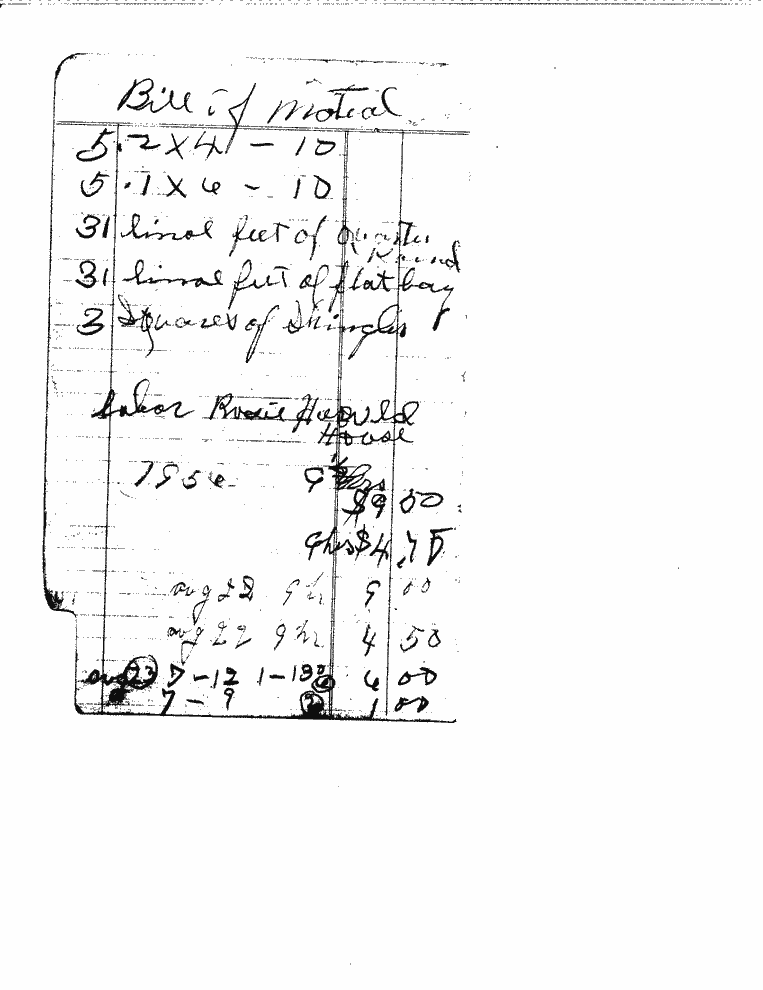 Bill of Matieal
5 . 2 X 4 - 10
5 . 1 X 6 - 10
31 linial feet of Quarter
Round
31 linial feet of flat bay
3 Squares of Shingles
Labor Rosie Harold
House
1956 9 1/2 hrs
$9 50
9 hrs $4.75
aug 22 9 hr 9 00
aug 22 9 hr 4 50
aug 23 7 - 12 1 - 1 6 6 00
7 - 9 2 1 00